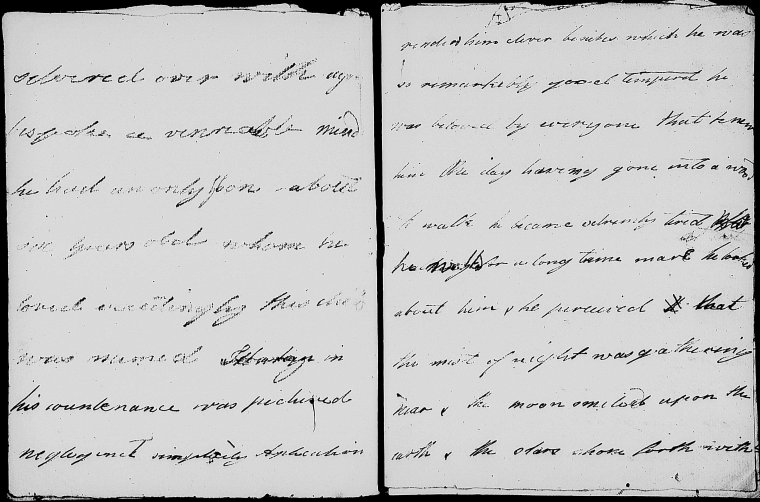 silvered over with age
bespoke a venrable mind
he had an only son about
six years old whom he
loved exceedingly this child
was mimed in
his countenance was pictured
neglegence simplicity Application
render him clever besites which he was
so remarkebly good tempered he
was beloved by everyone that knew
him One day having gone into a wood
to walk he became extremely tired
he for a long time more he looked
about him & he perceived that
the mist of night was gathering
near & the moon smiled upon the
earth & the stars shone forth with